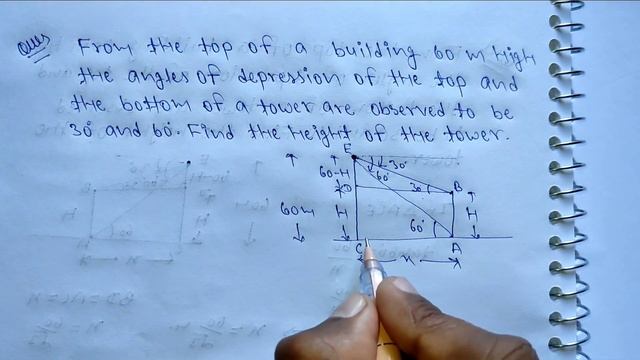 Ques
From the top of a building 60 m high
the angles of depression of the top and
the bottom of a tower are observed to be
30° and 60°. Find the height of the tower.
E
30°
60°
60-H
D
30°
B
60m
H
60°
H
C
A
x